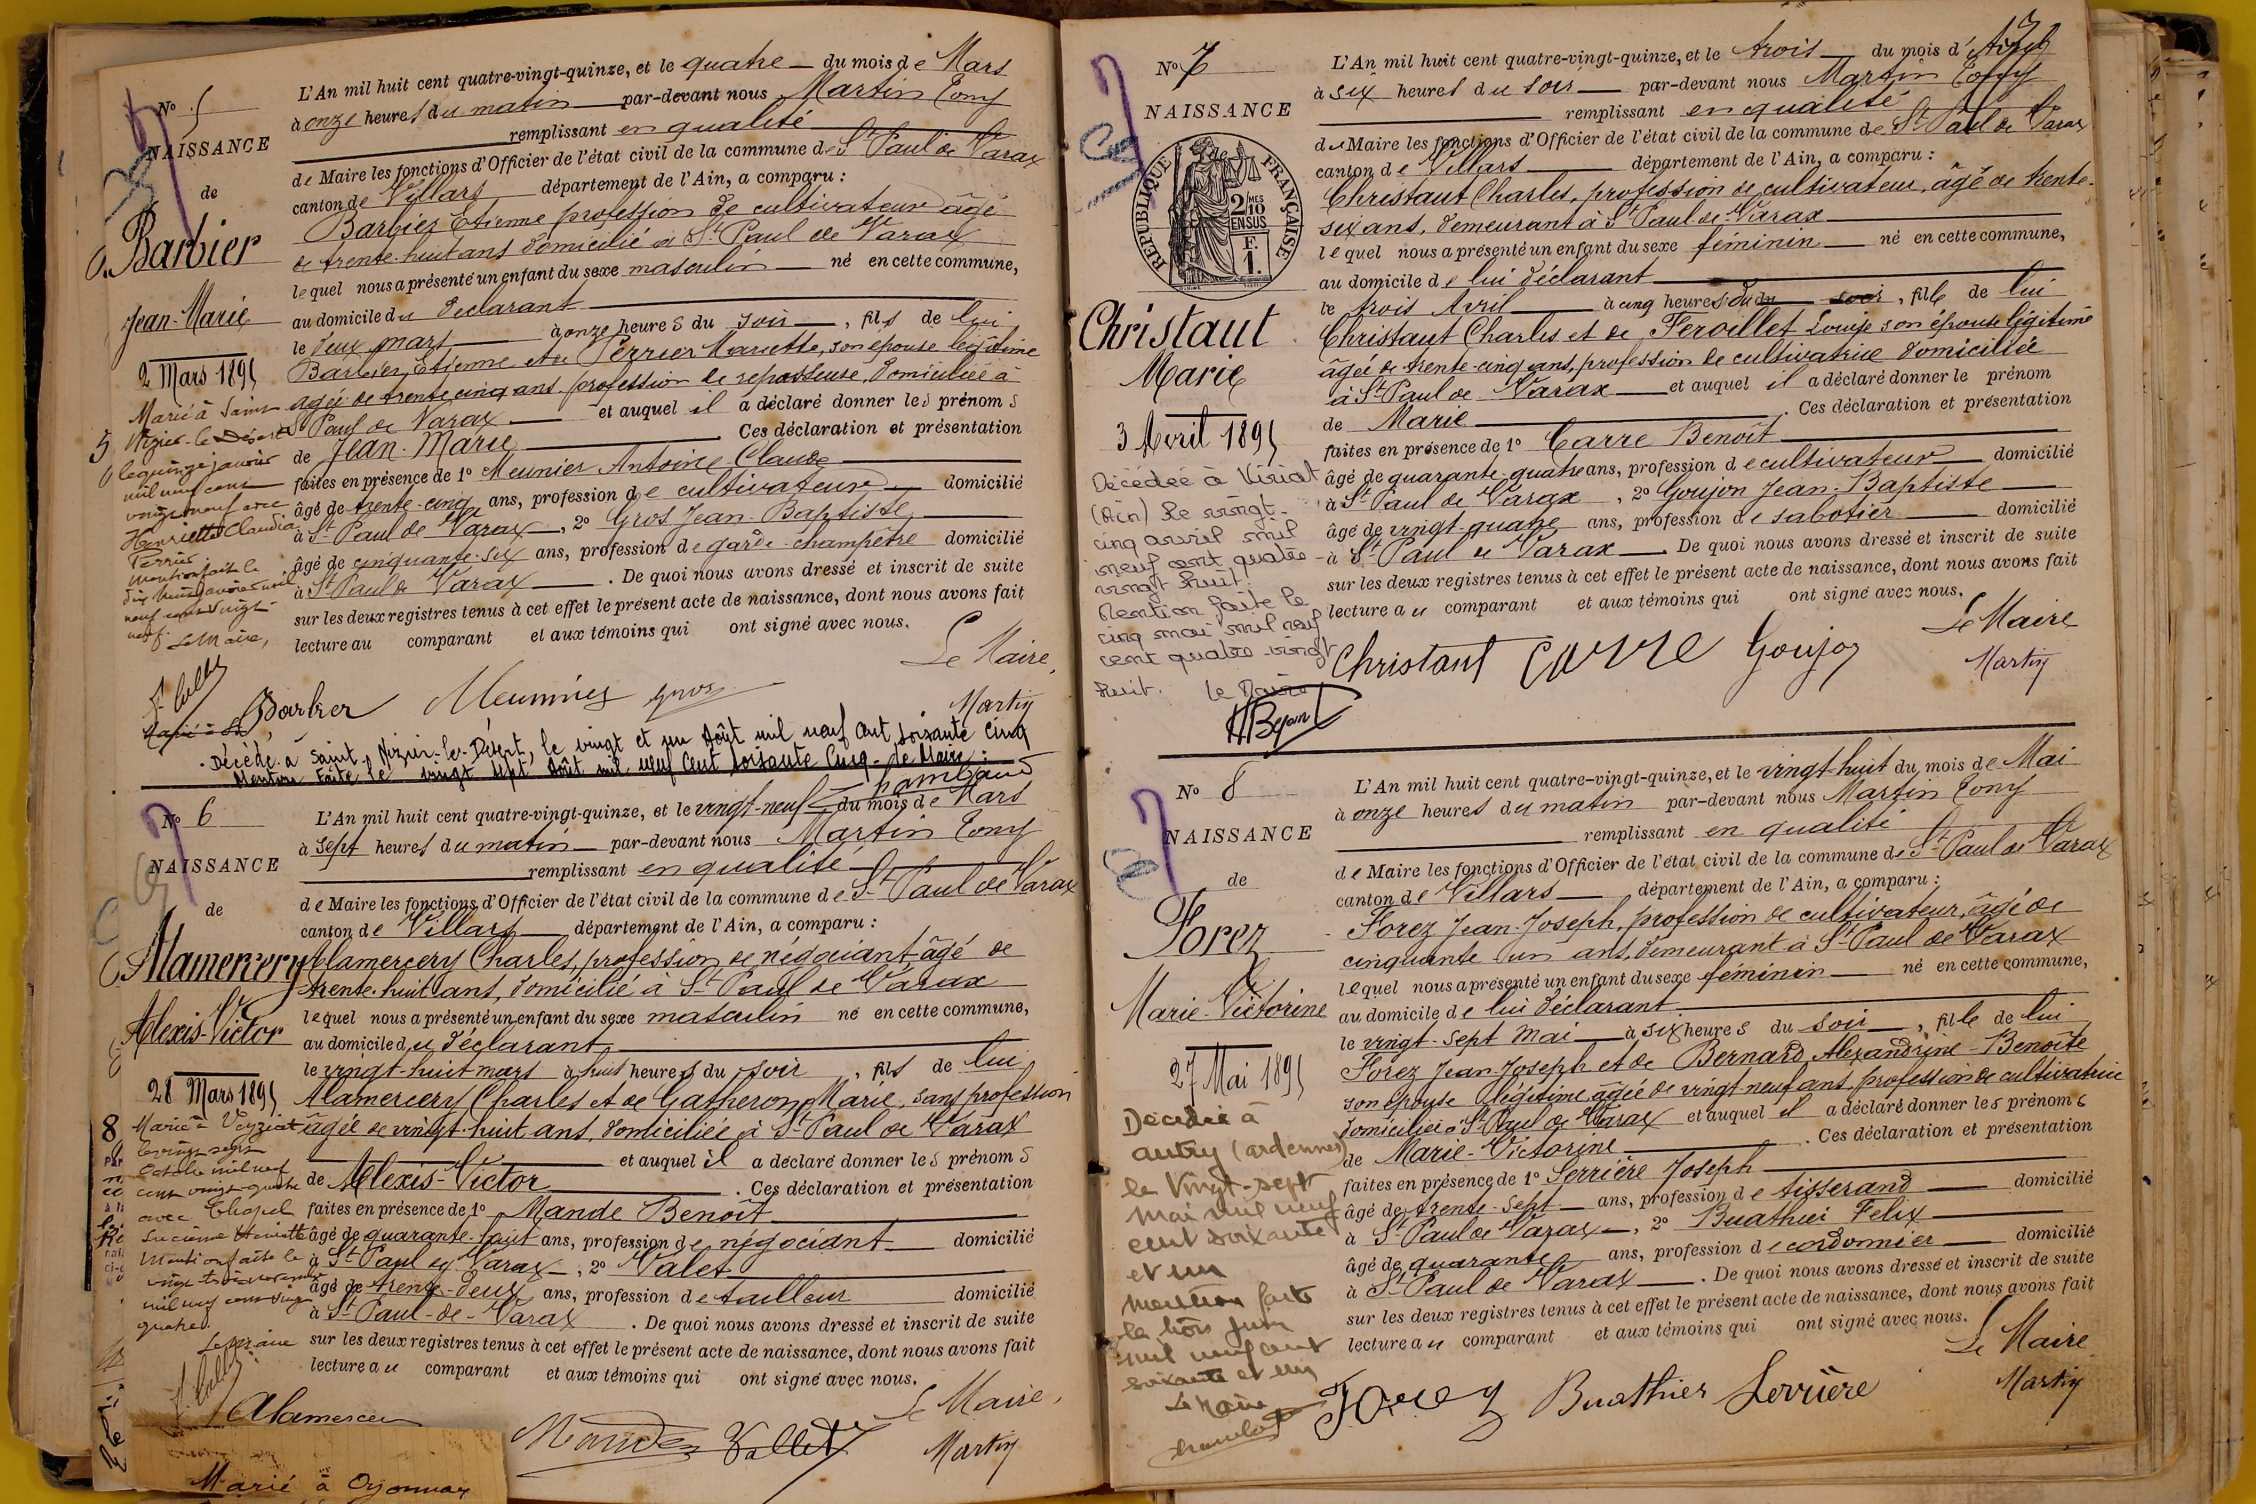 N° 5
NAISSANCE
de
Barbier
Jean-Marie
2 Mars 1895
Marié à Saint
Nizier-le-Désert
le quinze janvier
mil neuf cent
vingt neuf avec
Henriette Claudia
Perrier
mention faite le
dix huit janvier mil
neuf cent vingt
neuf. Le Maire,
L'An mil huit cent quatre-vingt-quinze, et le quatre du mois de Mars
à onze heures du matin par-devant nous Martin Tony
remplissant en qualité
de Maire les fonctions d'Officier de l'état civil de la commune de St Paul de Varax
canton de Villars département de l'Ain, a comparu :
Barbier Etienne profession de cultivateur âgé
de trente-huit ans domicilié à St Paul de Varax
lequel nous a présenté un enfant du sexe masculin né en cette commune,
au domicile du déclarant
le deux mars à onze heures du soir, fils de lui
Barbier Etienne et de Perrier Mariette, son épouse légitime
âgée de trente cinq ans, profession de repasseuse, domiciliée à
St Paul de Varax et auquel il a déclaré donner les prénoms
de Jean-Marie Ces déclaration et présentation
faites en présence de 1° Meunier Antoine Claude
âgé de trente-cinq ans, profession de cultivateur domicilié
à St Paul de Varax, 2° Gros Jean-Baptiste
âgé de cinquante-six ans, profession de garde-champêtre domicilié
à St Paul de Varax. De quoi nous avons dressé et inscrit de suite
sur les deux registres tenus à cet effet le présent acte de naissance, dont nous avons fait
lecture au comparant et aux témoins qui ont signé avec nous.
Le Maire,
Barbier Meunier Gros Martin
Décédé à Saint-Nizier-le-Désert, le vingt et un Août mil neuf cent soixante cinq
Mention faite le vingt sept Août mil neuf cent soixante cinq - Le Maire :
N° 6
NAISSANCE
de
Alamercery
Alexis-Victor
28 Mars 1895
Marié à Veyziat
le vingt sept
Octobre mil neuf
cent vingt quatre
avec Chapel
Lucienne Henriette
Mention faite le
vingt trois novembre
mil neuf cent vingt
quatre.
Le Maire
L'An mil huit cent quatre-vingt-quinze, et le vingt-neuf du mois de Mars
à sept heures du matin par-devant nous Martin Tony
remplissant en qualité
de Maire les fonctions d'Officier de l'état civil de la commune de St Paul de Varax
canton de Villars département de l'Ain, a comparu :
Alamercery Charles, profession de négociant âgé de
trente-huit ans, domicilié à St Paul de Varax
lequel nous a présenté un enfant du sexe masculin né en cette commune,
au domicile du déclarant
le vingt-huit mars à huit heures du soir, fils de lui
Alamercery Charles et de Gatheron Marie, sans profession
âgée de vingt-huit ans, domiciliée à St Paul de Varax
et auquel il a déclaré donner les prénoms
de Alexis-Victor. Ces déclaration et présentation
faites en présence de 1° Mande Benoît
âgé de quarante-huit ans, profession de négociant domicilié
à St Paul de Varax, 2° Valet
âgé de trente-deux ans, profession de tailleur domicilié
à St Paul-de-Varax. De quoi nous avons dressé et inscrit de suite
sur les deux registres tenus à cet effet le présent acte de naissance, dont nous avons fait
lecture au comparant et aux témoins qui ont signé avec nous.
Le Maire,
Vallet Martin
Marié à Oyonnax
N° 7
NAISSANCE
RÉPUBLIQUE FRANÇAISE
2 MES
10
EN SUS
F.
1.
Christaut
Marie
3 Avril 1895
Décédée à Viriat
(Ain) le vingt-
cinq avril mil
neuf cent quatre
vingt huit.
Mention faite le
cinq mai mil neuf
cent quatre-vingt
huit. Le Maire
L'An mil huit cent quatre-vingt-quinze, et le trois du mois d'Avril
à six heures du soir par-devant nous Martin Tony
remplissant en qualité
de Maire les fonctions d'Officier de l'état civil de la commune de St Paul de Varax
canton de Villars département de l'Ain, a comparu :
Christaut Charles, profession de cultivateur, âgé de trente-
six ans, demeurant à St Paul de Varax
lequel nous a présenté un enfant du sexe féminin né en cette commune,
au domicile de lui déclarant
le trois Avril à cinq heures du soir, fille de lui
Christaut Charles et de Feroillet Louise son épouse légitime
âgée de trente-cinq ans, profession de cultivatrice domiciliée
à St Paul de Varax et auquel il a déclaré donner le prénom
de Marie. Ces déclaration et présentation
faites en présence de 1° Carre Benoît
âgé de quarante-quatre ans, profession de cultivateur domicilié
à St Paul de Varax, 2° Goujon Jean-Baptiste
âgé de vingt-quatre ans, profession de sabotier domicilié
à St Paul de Varax. De quoi nous avons dressé et inscrit de suite
sur les deux registres tenus à cet effet le présent acte de naissance, dont nous avons fait
lecture au comparant et aux témoins qui ont signé avec nous.
Le Maire
Christaut Carre Goujon Martin
N° 8
NAISSANCE
de
Forez
Marie-Victorine
27 Mai 1895
Décédée à
autry (ardennes)
le vingt-sept
mai mil neuf
cent soixante
et un
Mention faite
le trois juin
mil neuf cent
soixante et un
Le Maire
L'An mil huit cent quatre-vingt-quinze, et le vingt-huit du mois de Mai
à onze heures du matin par-devant nous Martin Tony
remplissant en qualité
de Maire les fonctions d'Officier de l'état civil de la commune de St Paul de Varax
canton de Villars département de l'Ain, a comparu :
Forez Jean-Joseph, profession de cultivateur, âgé de
cinquante un ans, demeurant à St Paul de Varax
lequel nous a présenté un enfant du sexe féminin né en cette commune,
au domicile de lui déclarant
le vingt-sept Mai à six heures du soir, fille de lui
Forez Jean-Joseph et de Bernard Alexandrine-Benoîte
son épouse légitime âgée de vingt neuf ans, profession de cultivatrice
domiciliée à St Paul de Varax et auquel il a déclaré donner les prénoms
de Marie-Victorine. Ces déclaration et présentation
faites en présence de 1° Serrière Joseph
âgé de trente-sept ans, profession de tisserand domicilié
à St Paul de Varax, 2° Buathier Felix
âgé de quarante ans, profession de cordonnier domicilié
à St Paul de Varax. De quoi nous avons dressé et inscrit de suite
sur les deux registres tenus à cet effet le présent acte de naissance, dont nous avons fait
lecture au comparant et aux témoins qui ont signé avec nous.
Le Maire
Forez Buathier Serrière Martin